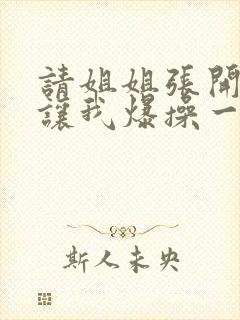 請姐姐張開
讓我爆操一
斯人未央